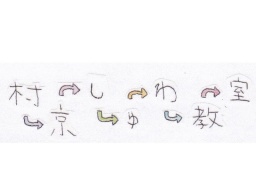 村 し わ 室
京 ゅ 教